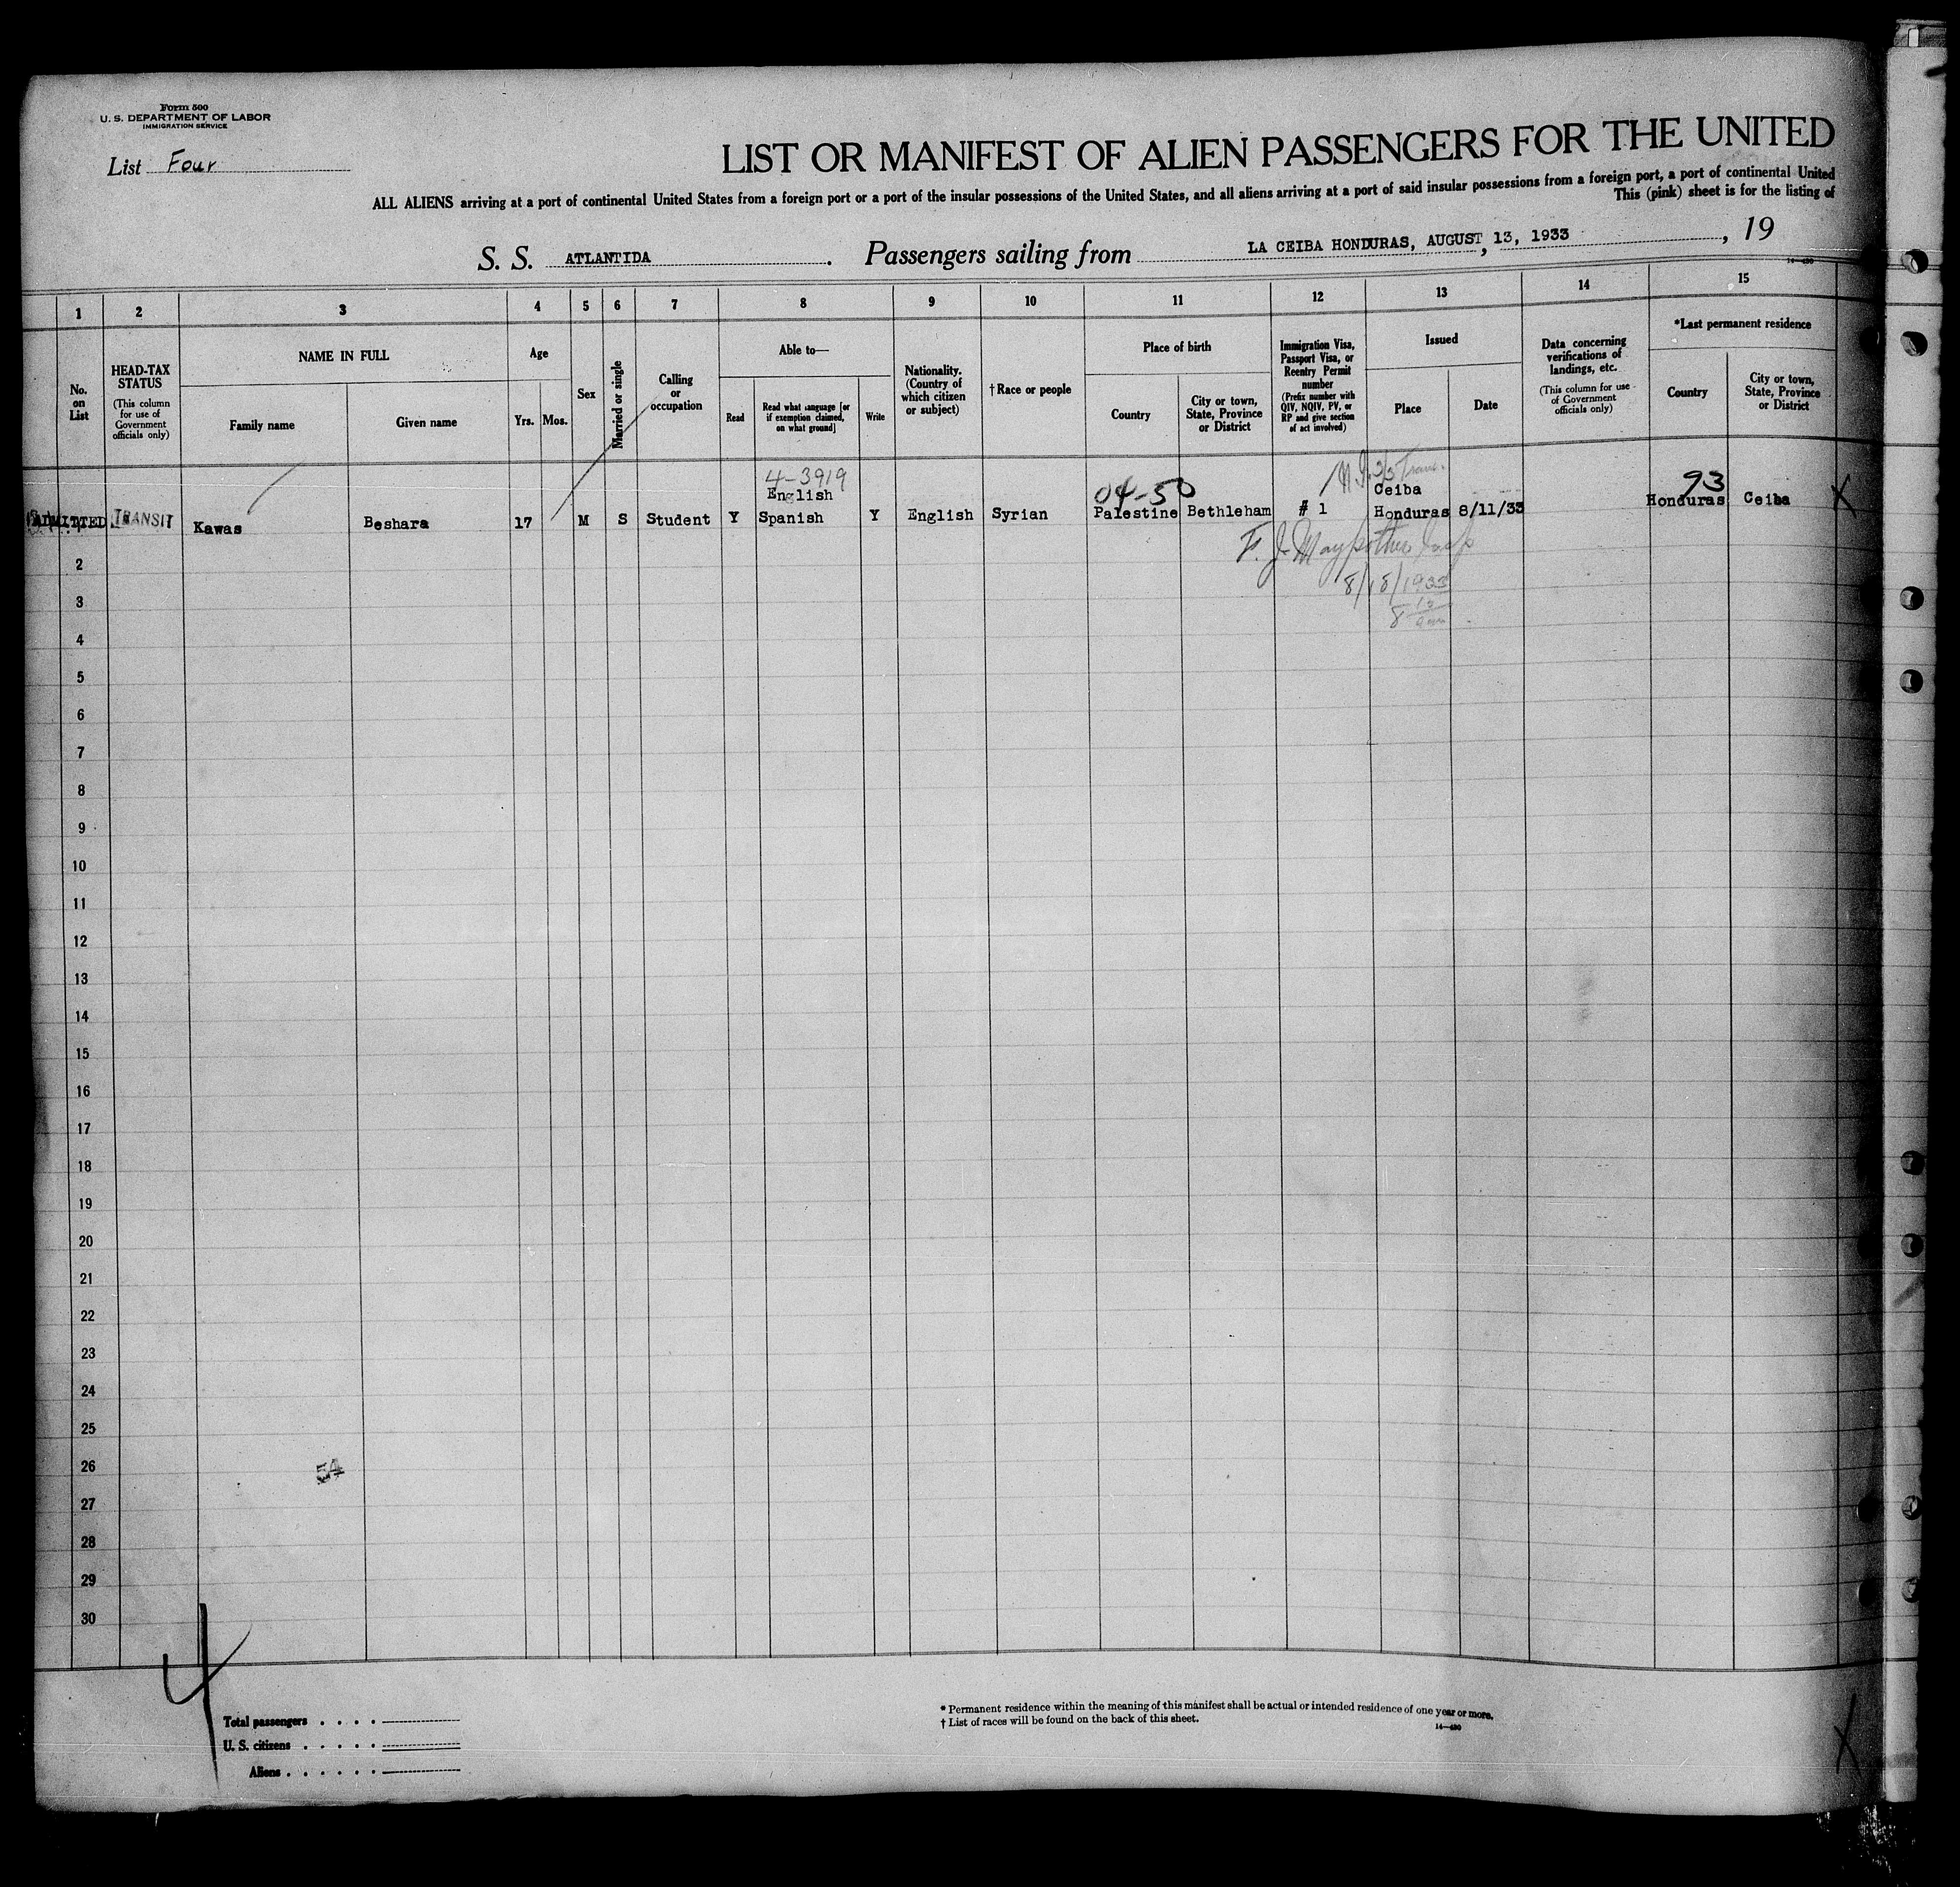 Form 500
U. S. DEPARTMENT OF LABOR
IMMIGRATION SERVICE
List Four
LIST OR MANIFEST OF ALIEN PASSENGERS FOR THE UNITED
ALL ALIENS arriving at a port of continental United States from a foreign port or a port of the insular possessions of the United States, and all aliens arriving at a port of said insular possessions from a foreign port, a port of continental United
This (pink) sheet is for the listing of
S. S. ATLANTIDA. Passengers sailing from LA CEIBA HONDURAS, AUGUST, 13, 1933, 19
1 2 3 4 5 6 7 8 9 10 11 12 13 14 15
No. on List
HEAD-TAX STATUS
(This column for use of Government officials only)
NAME IN FULL
Family name
Given name
Age
Yrs.
Mos.
Sex
Married or single
Calling or occupation
Able to—
Read
Read what language [or if exemption claimed, on what ground]
Write
Nationality. (Country of which citizen or subject)
† Race or people
Place of birth
Country
City or town, State, Province or District
Immigration Visa, Passport Visa, or Reentry Permit number
(Prefix number with QIV, NQIV, PV, or RP and give section of act involved)
Issued
Place
Date
Data concerning verifications of landings, etc.
(This column for use of Government officials only)
*Last permanent residence
Country
City or town, State, Province or District
4-3919
04-50
93
English
Ceiba
ADMITTED TRANSIT Kawas Beshara 17 M S Student Y Spanish Y English Syrian Palestine Bethleham # 1 Honduras 8/11/33 Honduras Ceiba X
8/18/1933
2
3
4
5
6
7
8
9
10
11
12
13
14
15
16
17
18
19
20
21
22
23
24
25
26
54
27
28
29
30
4
Total passengers
U. S. citizens
Aliens
* Permanent residence within the meaning of this manifest shall be actual or intended residence of one year or more.
† List of races will be found on the back of this sheet.
14—490
X